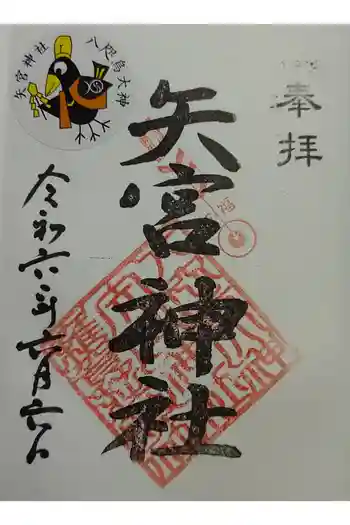 奉拝
矢宮神社
令和六年六月六日
八咫烏大神
矢宮神社